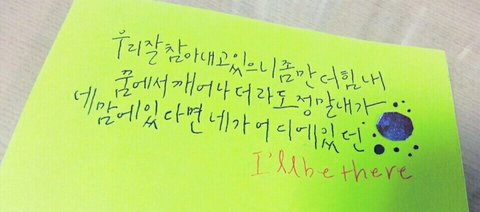 우리잘참아내고있으니좀만더힘내
꿈에서깨어나더라도정말내가
네맘에있다면네가어디에있던
I'll be there